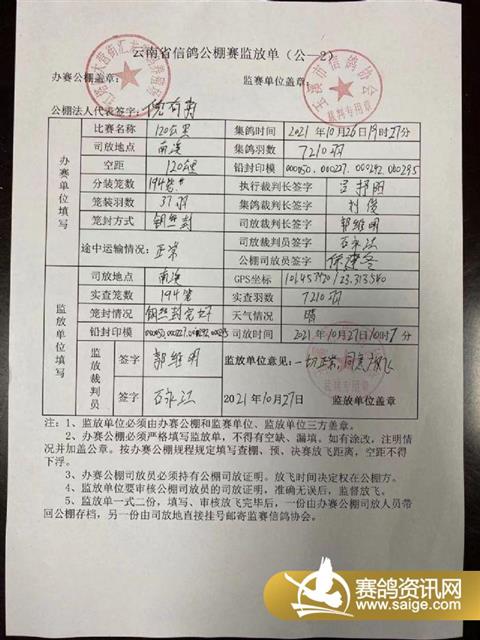 云南省信鸽公棚赛监放单（公—2）
办赛公棚盖章： 监赛单位盖章：
公棚法人代表签字：
办赛单位填写
比赛名称 120公里 集鸽时间 2021年10月26日19时27分
司放地点 南溪 集鸽羽数 7210羽
空距 120公里 铅封印模 000050.000227.000292.000295
分装笼数 194笼 执行裁判长签字
笼装羽数 37羽 集鸽裁判长签字
笼封方式 钢丝封 司放裁判长签字 郭维明
途中运输情况： 正常 司放裁判员签字
公棚司放员签字
监放单位填写
司放地点 南溪 GPS坐标
实查笼数 194笼 实查羽数 7210羽
笼封情况 钢丝封完好 天气情况 晴
铅封印模 000050.000227.000292.000295 司放时间 2021年10月27日10时7分
监放裁判员
签字 郭维明 监放单位意见： 一切正常，同意放飞
签字 2021年10月27日 监放单位盖章
注：1、监放单位必须由办赛公棚和监赛单位、监放单位三方盖章。
2、办赛公棚必须严格填写监放单，不得有空缺、漏填，如有涂改，注明情
况并加盖公章。按办赛公棚规程规定填写查棚、预、决赛放飞距离，空距不得
下浮。
3、办赛公棚司放员必须持有公棚司放证明。放飞时间决定权在公棚方。
4、监放单位要审核公棚司放员的司放证明，准确无误后，监督放飞。
5、监放单一式二份，填写、审核放飞完毕后，一份由办赛公棚司放人员带
回公棚存档，另一份由司放地直接挂号邮寄监赛信鸽协会。
玉溪市信鸽协会
裁判专用章
赛鸽资讯网
www.saige.com